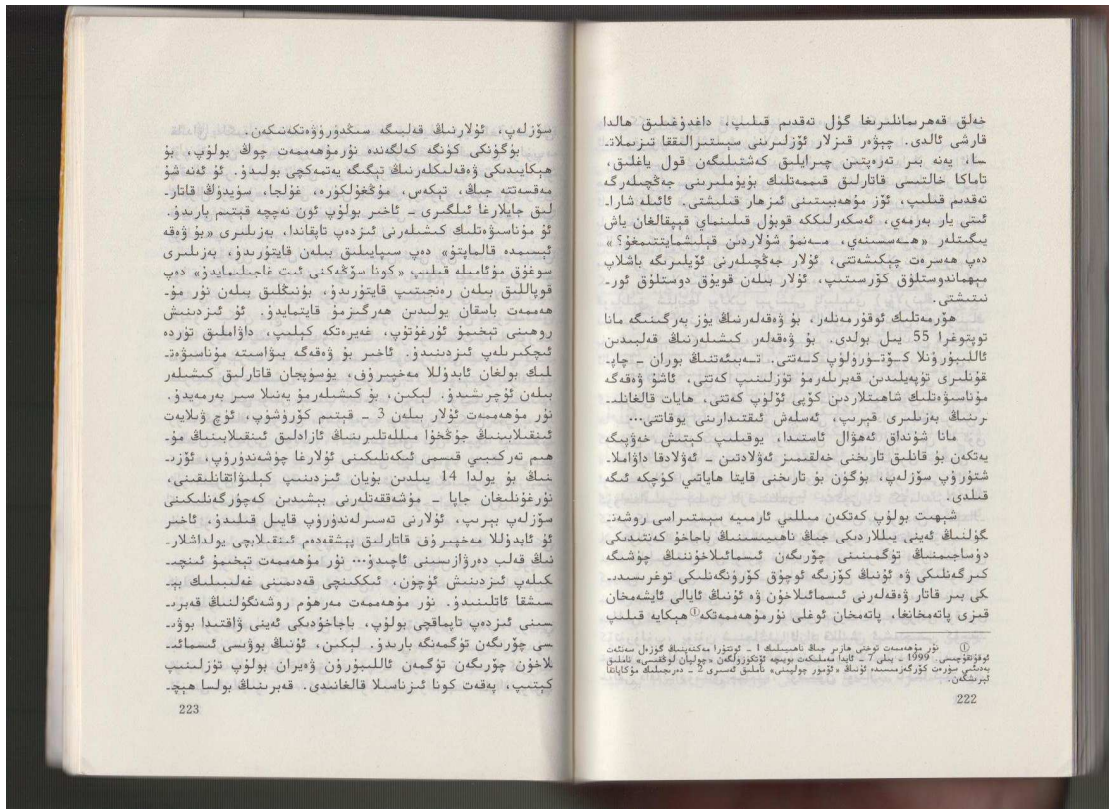 خەلق قەھرىمانلىرىغا گۈل تەقدىم قىلىپ، داغدۇغىلىق ھالدا
قارشى ئالدى. چېۋەر قىزلار ئۆزلىرىنى سېستىرالىققا تىزىملاتـ
سا، يەنە بىر تەرەپتىن چىرايلىق كەشتىلىگەن قول ياغلىق،
تاماكا خالتىسى قاتارلىق قىممەتلىك بۇيۇملىرىنى جەڭچىلەرگە
تەقدىم قىلىپ، ئۆز مۇھەببىتىنى ئىزھار قىلىشتى. ئائىلە شاراـ
ئىتى يار بەرمەي، ئەسكەرلىككە قوبۇل قىلىنماي قېپقالغان ياش
يىگىتلەر «ھـەسسىنەي، مـەنمۇ شۇلاردىن قېلىشمايتتىمغۇ؟»
دەپ ھەسرەت چېكىشەتتى، ئۇلار جەڭچىلەرنى ئۆيلىرىگە باشلاپ
مېھماندوستلۇق كۆرسىتىپ، ئۇلار بىلەن قويۇق دوستلۇق ئورـ
نىتىشتى.
ھۆرمەتلىك ئوقۇرمەنلەر، بۇ ۋەقەلەرنىڭ يۈز بەرگىنىگە مانا
توپتوغرا 55 يىل بولدى. بۇ ۋەقەلەر كىشىلەرنىڭ قەلبىدىن
ئاللىبۇرۇنلا كـۆتـۈرۈلۈپ كـەتتى. تـەبىئەتنىڭ بوران ـ چاپـ
قۇنلىرى تۈپەيلىدىن قەبرىلەرمۇ تۈزلىنىپ كەتتى، ئاشۇ ۋەقەگە
مۇناسىۋەتلىك شاھىتلاردىن كۆپى ئۆلۈپ كەتتى، ھايات قالغانلىـ
رىنىڭ بەزىلىرى قېرىپ، ئەسلەش ئىقتىدارىنى يوقاتتى...
مانا شۇنداق ئەھۋال ئاستىدا، يوقىلىپ كېتىش خەۋپىگە
يەتكەن بۇ قانلىق تارىخنى خەلقىمىز ئەۋلادتىن ـ ئەۋلادقا داۋاملاـ
شتۇرۇپ سۆزلەپ، بۈگۈن بۇ تارىخنى قايتا ھاياتىي كۈچكە ئىگە
قىلدى.
شېھىت بولۇپ كەتكەن مىللىي ئارمىيە سېستىراسى روشەنـ
گۈلنىڭ ئەينى يىللاردىكى جىڭ ناھىيىسىنىڭ باجاخۇ كەنتىدىكى
دۇساجىمنىڭ تۈگمىنىنى چۆرىگەن ئىسمائىلاخۇننىڭ چۈشىگە
كىرگەنلىكى ۋە ئۇنىڭ كۆزىگە ئوچۇق كۆرۈنگەنلىكى توغرىسىدىـ
كى بىر قاتار ۋەقەلەرنى ئىسمائىلاخۇن ۋە ئۇنىڭ ئايالى ئايشەمخان
قىزى پاتەمخانغا، پاتەمخان ئوغلى نۇرمۇھەممەتكە① ھېكايە قىلىپ
① نۇر مۇھەممەت توختى ھازىر جىڭ ناھىيىلىك 1 ـ ئوتتۇرا مەكتەپنىڭ گۈزەل سەنئەت
ئوقۇتقۇچىسى. 1999 ـ يىلى 7 ـ ئايدا مەملىكەت بويىچە ئۆتكۈزۈلگەن «جۇلېان لوڭقىسى» ناملىق
بەدىئىي سۈرەت كۆرگەزمىسىدە ئۇنىڭ «ئۆمۈر چولپىنى» ناملىق ئەسىرى 2 ـ دەرىجىلىك مۇكاپاتقا
ئېرىشكەن.
222
سۆزلەپ، ئۇلارنىڭ قەلبىگە سىڭدۈرۈۋەتكەنىكەن.
بۈگۈنكى كۈنگە كەلگەندە نۇرمۇھەممەت چوڭ بولۇپ، بۇ
ھېكايىدىكى ۋەقەلىكلەرنىڭ تېگىگە يەتمەكچى بولىدۇ. ئۇ ئەنە شۇ
مەقسەتتە جىڭ، تېكەس، موڭغۇلكۈرە، غۇلجا، سۈيدۈڭ قاتارـ
لىق جايلارغا ئىلگىرى ـ ئاخىر بولۇپ ئون نەچچە قېتىم بارىدۇ.
ئۇ مۇناسىۋەتلىك كىشىلەرنى ئىزدەپ تاپقاندا، بەزىلىرى «بۇ ۋەقە
ئېسىمدە قالماپتۇ» دەپ سىپايىلىق بىلەن قايتۇرىدۇ، بەزىلىرى
سوغۇق مۇئامىلە قىلىپ «كونا سۆڭەكنى ئىت غاجىلىمايدۇ» دەپ
قوپاللىق بىلەن رەنجىتىپ قايتۇرىدۇ، بۇنىڭلىق بىلەن نۇر مۇـ
ھەممەت باسقان يولىدىن ھەرگىزمۇ قايتمايدۇ. ئۇ ئىزدىنىش
روھىنى تېخىمۇ ئۇرغۇتۇپ، غەيرەتكە كېلىپ، داۋاملىق تۈردە
ئىچكىرىلەپ ئىزدىنىدۇ. ئاخىر بۇ ۋەقەگە بىۋاسىتە مۇناسىۋەتـ
لىك بولغان ئابدۇللا مەخپىرۇف، يۈسۈپجان قاتارلىق كىشىلەر
بىلەن ئۇچرىشىدۇ. لېكىن، بۇ كىشىلەرمۇ يەنىلا سىر بەرمەيدۇ.
نۇر مۇھەممەت ئۇلار بىلەن 3 ـ قېتىم كۆرۈشۈپ، ئۈچ ۋىلايەت
ئىنقىلابىنىڭ جۇڭخۇا مىللەتلىرىنىڭ ئازادلىق ئىنقىلابىنىڭ مۇـ
ھىم تەركىبىي قىسمى ئىكەنلىكىنى ئۇلارغا چۈشەندۈرۈپ، ئۆزىـ
نىڭ بۇ يولدا 14 يىلدىن بۇيان ئىزدىنىپ كېلىۋاتقانلىقىنى،
نۇرغۇنلىغان جاپا ـ مۇشەققەتلەرنى بېشىدىن كەچۈرگەنلىكىنى
سۆزلەپ بېرىپ، ئۇلارنى تەسىرلەندۈرۈپ قايىل قىلىدۇ. ئاخىر
ئۇ ئابدۇللا مەخپىرۇف قاتارلىق پېشقەدەم ئىنقىلابچى يولداشلارـ
نىڭ قەلب دەرۋازىسىنى ئاچىدۇ... نۇر مۇھەممەت تېخىمۇ ئىنچىـ
كىلەپ ئىزدىنىش ئۈچۈن، ئىككىنچى قەدىمىنى غەلىبىلىك بېـ
سىشقا ئاتلىنىدۇ. نۇر مۇھەممەت مەرھۇم روشەنگۈلنىڭ قەبرىـ
سىنى ئىزدەپ تاپماقچى بولۇپ، باجاخۇدىكى ئەينى ۋاقتىدا بوۋىـ
سى چۆرىگەن تۈگمەنگە بارىدۇ. لېكىن، ئۇنىڭ بوۋىسى ئىسمائىـ
لاخۇن چۆرىگەن تۈگمەن ئاللىبۇرۇن ۋەيران بولۇپ تۈزلىنىپ
كېتىپ، پەقەت كونا ئىزناسىلا قالغانىدى. قەبرىنىڭ بولسا ھېچـ
223